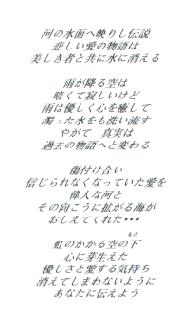 河の水面へ映りし伝説
悲しい愛の物語は
美しき者と共に水に消える
雨が降る空は
暗くて寂しいけど
雨は優しく心を癒して
濁った水をも洗い流す
やがて 真実は
過去の物語へと変わる
傷付け合い
信じられなくなっていた愛を
偉大な河と
その向こうに拡がる海が
おしえてくれた・・・
虹のかかる空の下
もと
心に芽生えた
優しさと愛する気持ち
消えてしまわないように
あなたに伝えよう